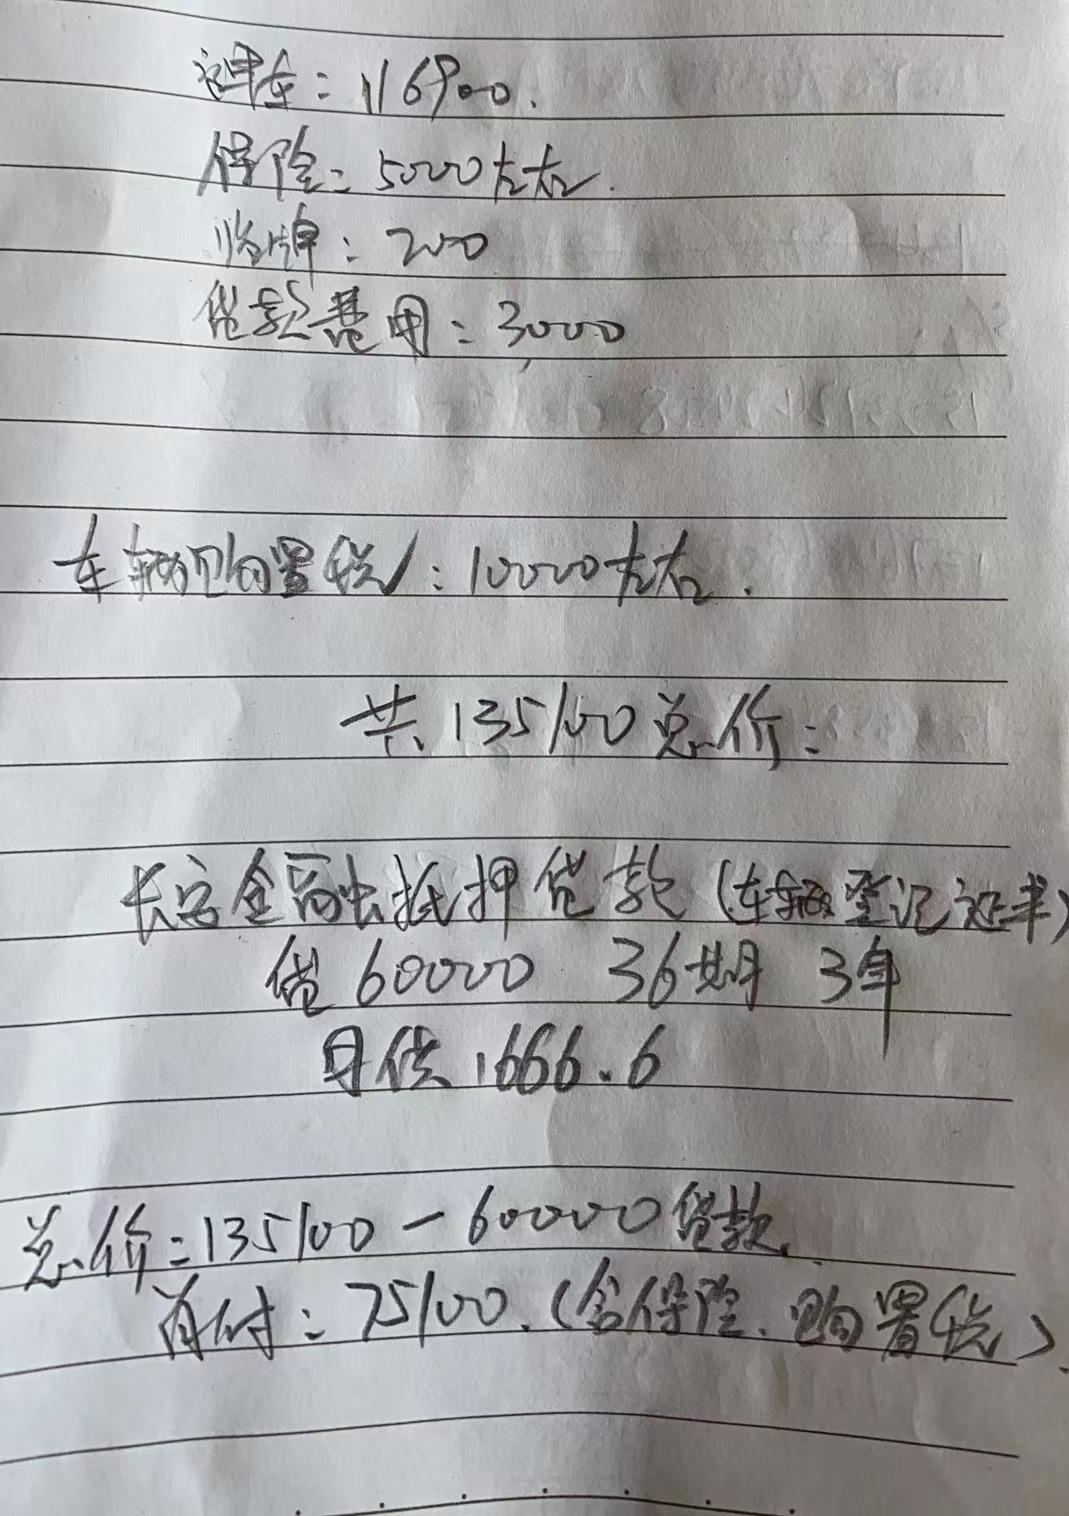 裸车：116900.
保险：5000左右.
临牌：200
贷款费用：3000
车辆购置税：10000左右.
共135100总价：
长安金融抵押贷款(车辆登记证书)
贷60000 36期 3年
月供1666.6
总价：135100-60000贷款.
首付：75100.(含保险.购置税)